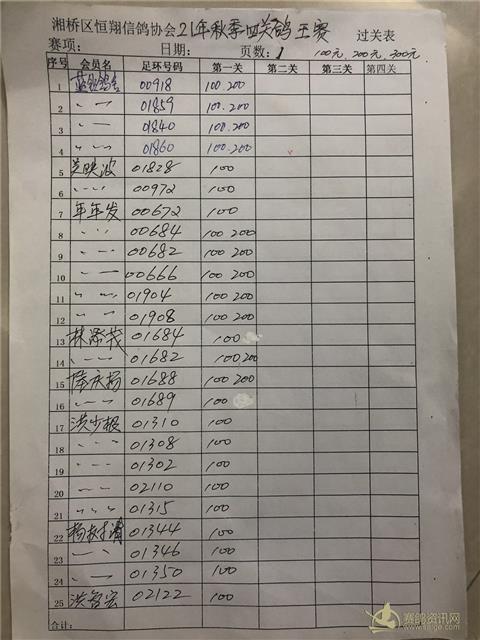 湘桥区恒翔信鸽协会21年秋季四关鸽王赛 过关表
赛项： 日期： 页数：1 100元，200元，300元
序号 会员名 足环号码 第一关 第二关 第三关 第四关
1 00918 100.200
2 〃 01859 100.200
3 〃 01840 100.200
4 〃 01860 100.200
5 01828 100
6 〃 00972 100
7 年年发 00672 100
8 〃 00684 100 200
9 〃 00682 100 200
10 〃 00666 100 200
11 〃 01904 100 200
12 〃 01908 100 200
13 林添茂 01684 100
14 〃 01682 100 200
15 陈庆扬 01688 100 200
16 〃 01689 100
17 洪少根 01310 100
18 〃 01308 100
19 〃 01302 100
20 〃 02110 100
21 〃 01315 100
22 01344 100
23 〃 01346 100
24 〃 01350 100
25 洪智宏 02122 100
合计：
赛鸽资讯网
www.saige.com